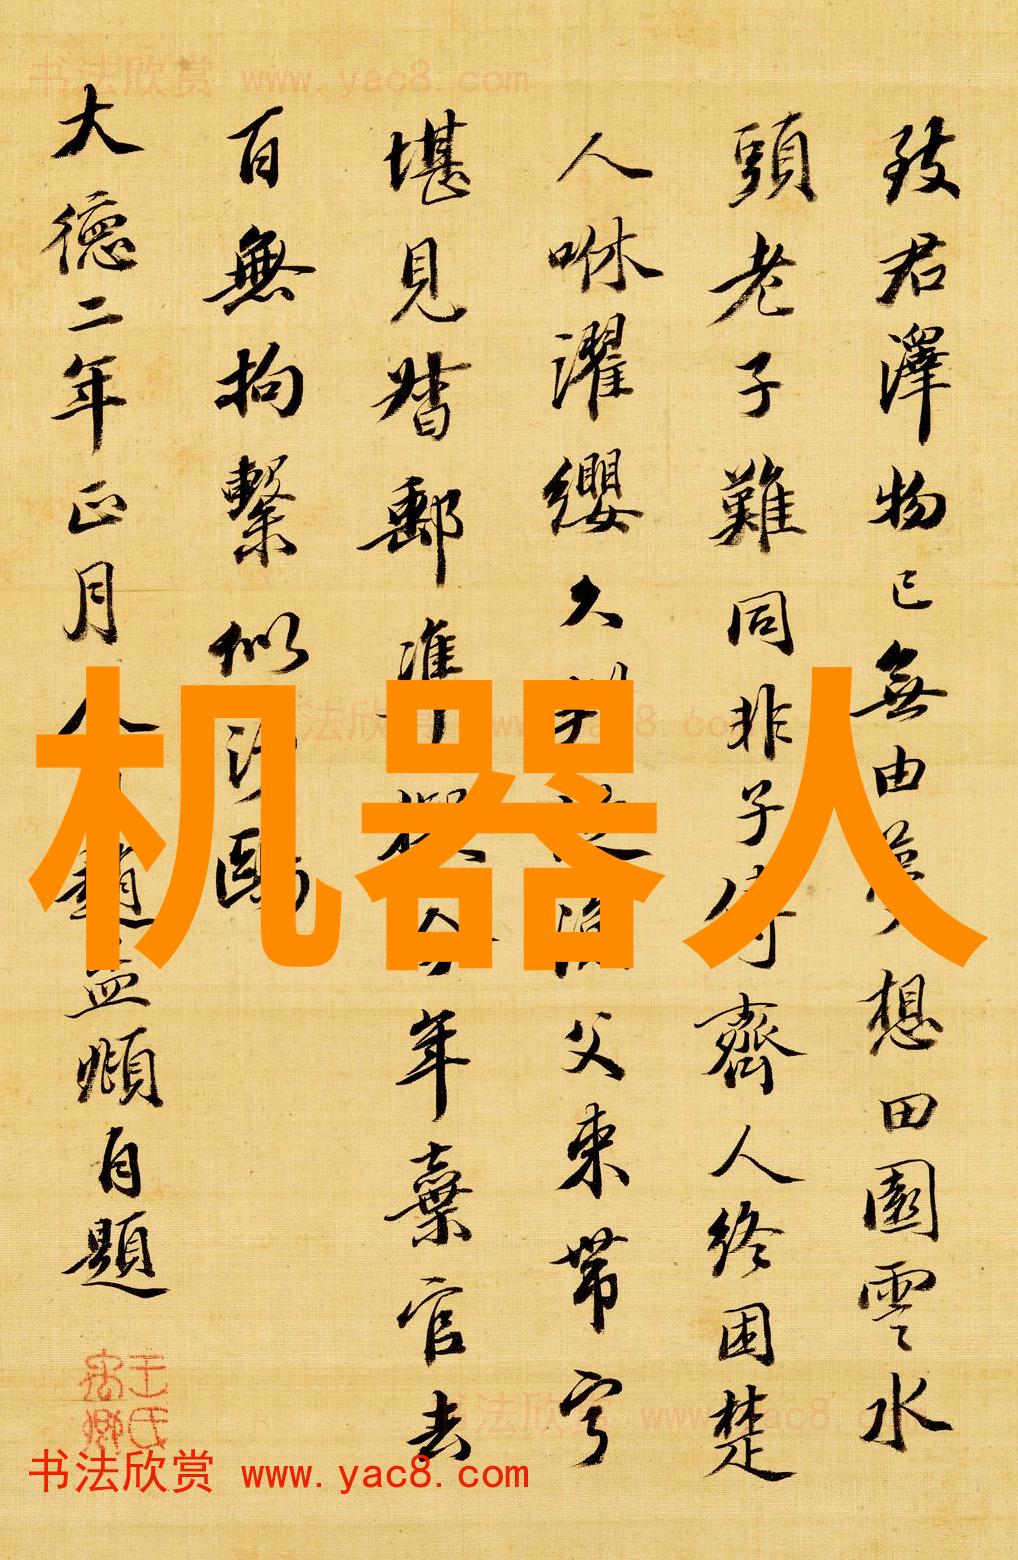 书法欣赏 www.yac8.com
致君澤物已無由夢想田園雲水
頭老子難同非子傳齊人終困楚
人咻濯纓久從漁父束帶寧
堪見督郵准擬年棄官去
百無拘繫似沙鷗
大德二年正月人日趙孟頫自題
机器人
书法欣赏 www.yac8.com
书法欣赏 www.yac8.com
书法欣赏 www.yac8.com